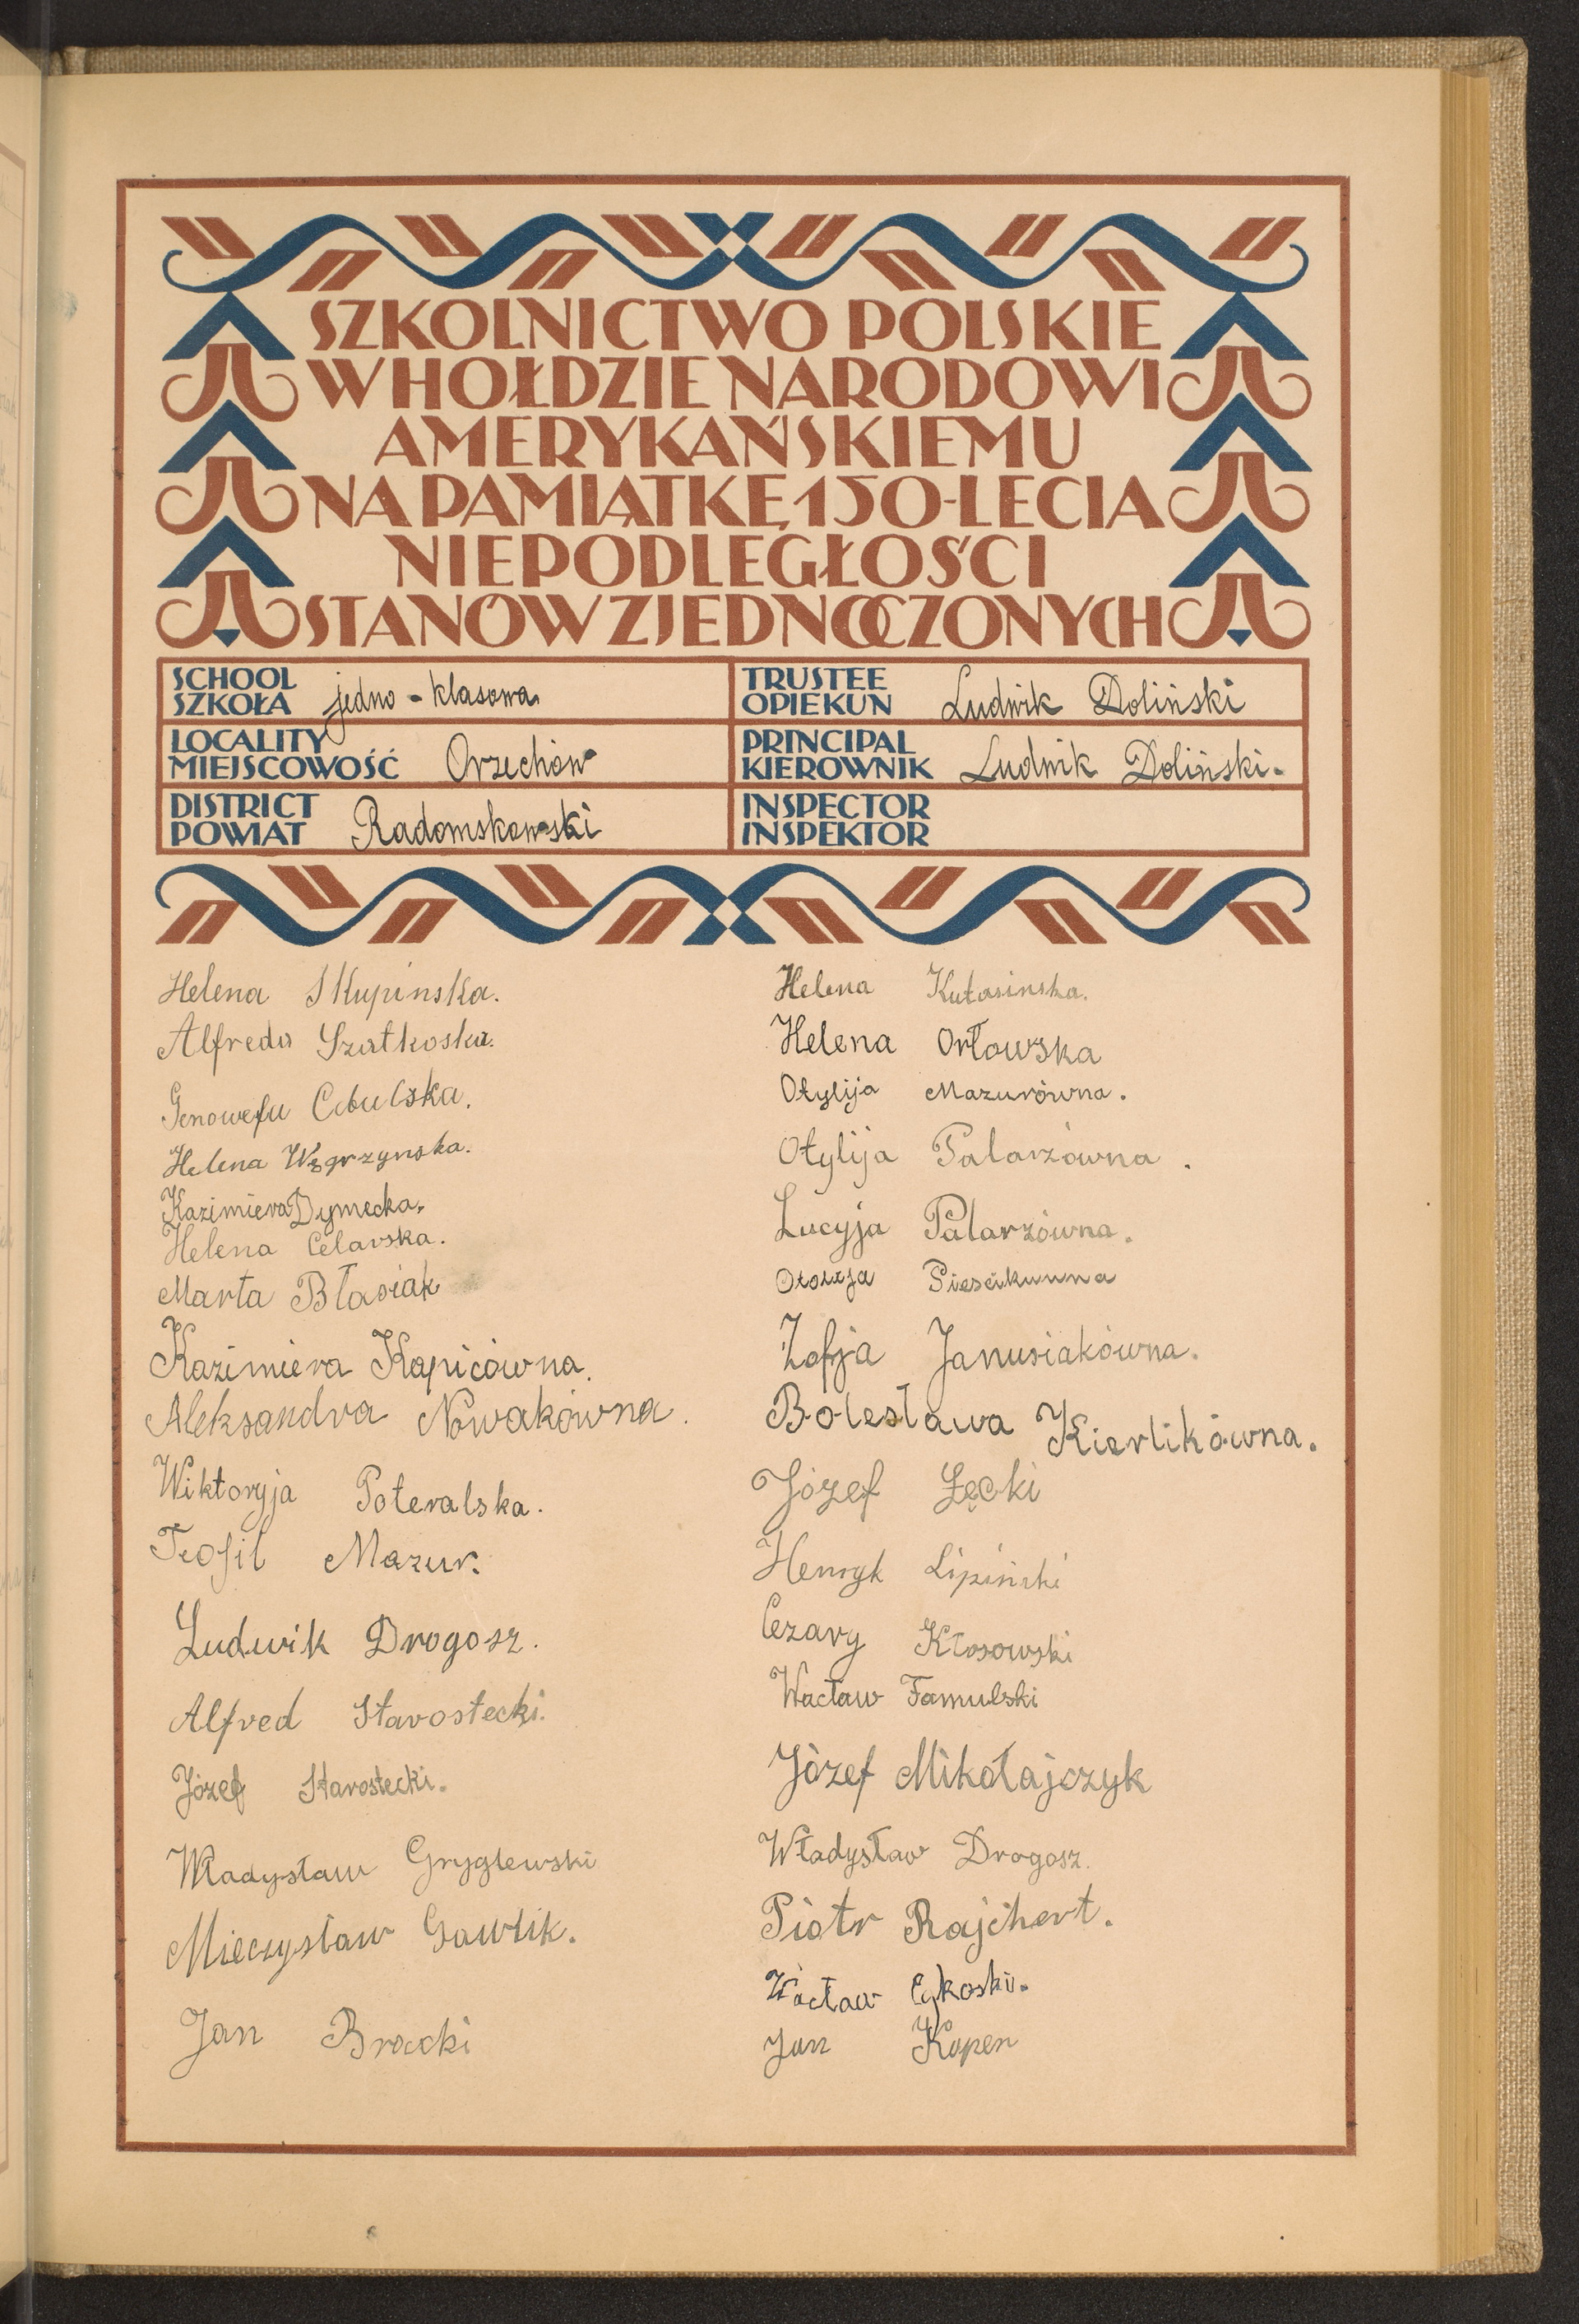 SZKOLNICTWO POLSKIE
W HOŁDZIE NARODOWI
AMERYKAŃSKIEMU
NA PAMIĄTKĘ 150-LECIA
NIEPODLEGŁOŚCI
STANÓW ZJEDNOCZONYCH
SCHOOL
SZKOŁA jedno-klasowa
TRUSTEE
OPIEKUN Ludwik Doliński
LOCALITY
MIEJSCOWOŚĆ Orzechów
PRINCIPAL
KIEROWNIK Ludwik Doliński.
DISTRICT
POWIAT Radomskowski
INSPECTOR
INSPEKTOR
Helena Skupinska.
Alfreda Szatkoska.
Genowefa Cebulska.
Helena Węgrzynska.
Kazimiera Dymecka.
Helena Celarska.
Marta Błasiak
Kazimiera Kapicówna.
Aleksandra Nowakówna.
Wiktoryja Poteralska.
Teofil Mazur.
Ludwik Drogosz.
Alfred Starostecki.
Józef Starostecki.
Władysław Gryglewski
Mieczysław Gawlik.
Jan Bracki
Helena Kutasinska.
Helena Orłowska
Otylija Mazurówna.
Otylija Palarzówna.
Lucyja Palarzówna.
Piescikuwna
Zofja Janusiakówna.
Bolesława Kierlikówna.
Józef Łęcki
Henryk Lipiński
Cezary Kłosowski
Wacław Famulski
Józef Mikołajczyk
Władysław Drogosz.
Piotr Rajchert.
Wacław Cykoski.
Jan Kopen